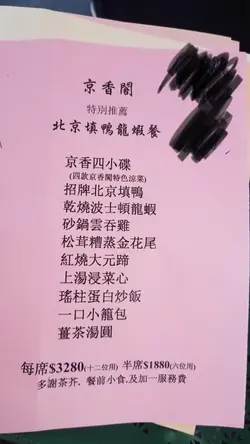 京香閣
特別推薦
北京填鴨龍蝦餐
京香四小碟
(四款京香閣特色涼菜)
招牌北京填鴨
乾燒波士頓龍蝦
砂鍋雲吞雞
松茸糟蒸金花尾
紅燒大元蹄
上湯浸菜心
瑤柱蛋白炒飯
一口小籠包
薑茶湯圓
每席$3280(十二位用) 半席$1880(六位用)
多謝茶芥, 餐前小食,及加一服務費